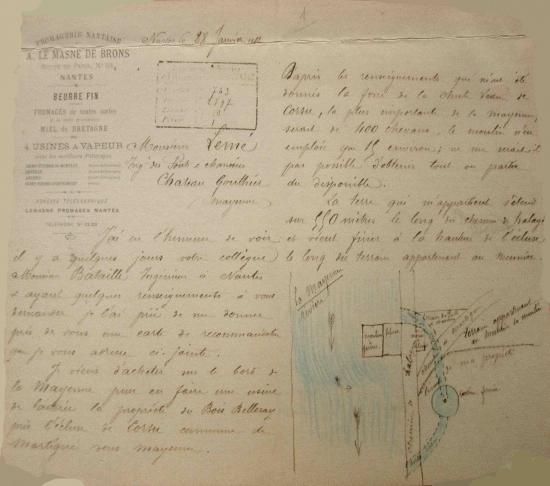 FROMAGERIE NANTAISE
A. LE MASNE DE BRONS
NANTES
BEURRE FIN
FROMAGES de toutes sortes
MIEL DE BRETAGNE
4 USINES A VAPEUR
ADRESSE TÉLÉGRAPHIQUE
LEMASNE FROMAGES NANTES
TÉLÉPHONE
Nantes le 28 Janvier
Monsieur
Ing des Ponts et chaussées
Chateau Gonthier
Mayenne
J'ai eu l'honneur de voir
il y a quelques jours votre collègue
Monsieur Bataille Ingénieur à Nantes
et ayant quelques renseignements à vous
demander je l'ai prié de me donner
près de vous une carte de recommandation
que je vous adresse ci-jointe.
Je viens d'acheter sur le bord de
la Mayenne pour en faire une usine
de laiterie la propriété du Bois Belleray
près l'écluse de Corçu commune de
Martigné sous Mayenne.
D'après les renseignements qui m'ont été
donnés la force de la chute d'eau de
Corçu, la plus importante de la Mayenne,
serait de 400 chevaux, le moulin n'en
emploie que 15 environ; ne me serait-il
pas possible d'obtenir tout ou partie
du disponible.
La terre qui m'appartient s'étend
sur 550 mètres le long du chemin de halage
et vient finir à la hauteur de l'écluse
le long du terrain appartenant au meunier.
la Mayenne
rivière
terrain appartenant
au meunier
ma propriété
chemin de halage